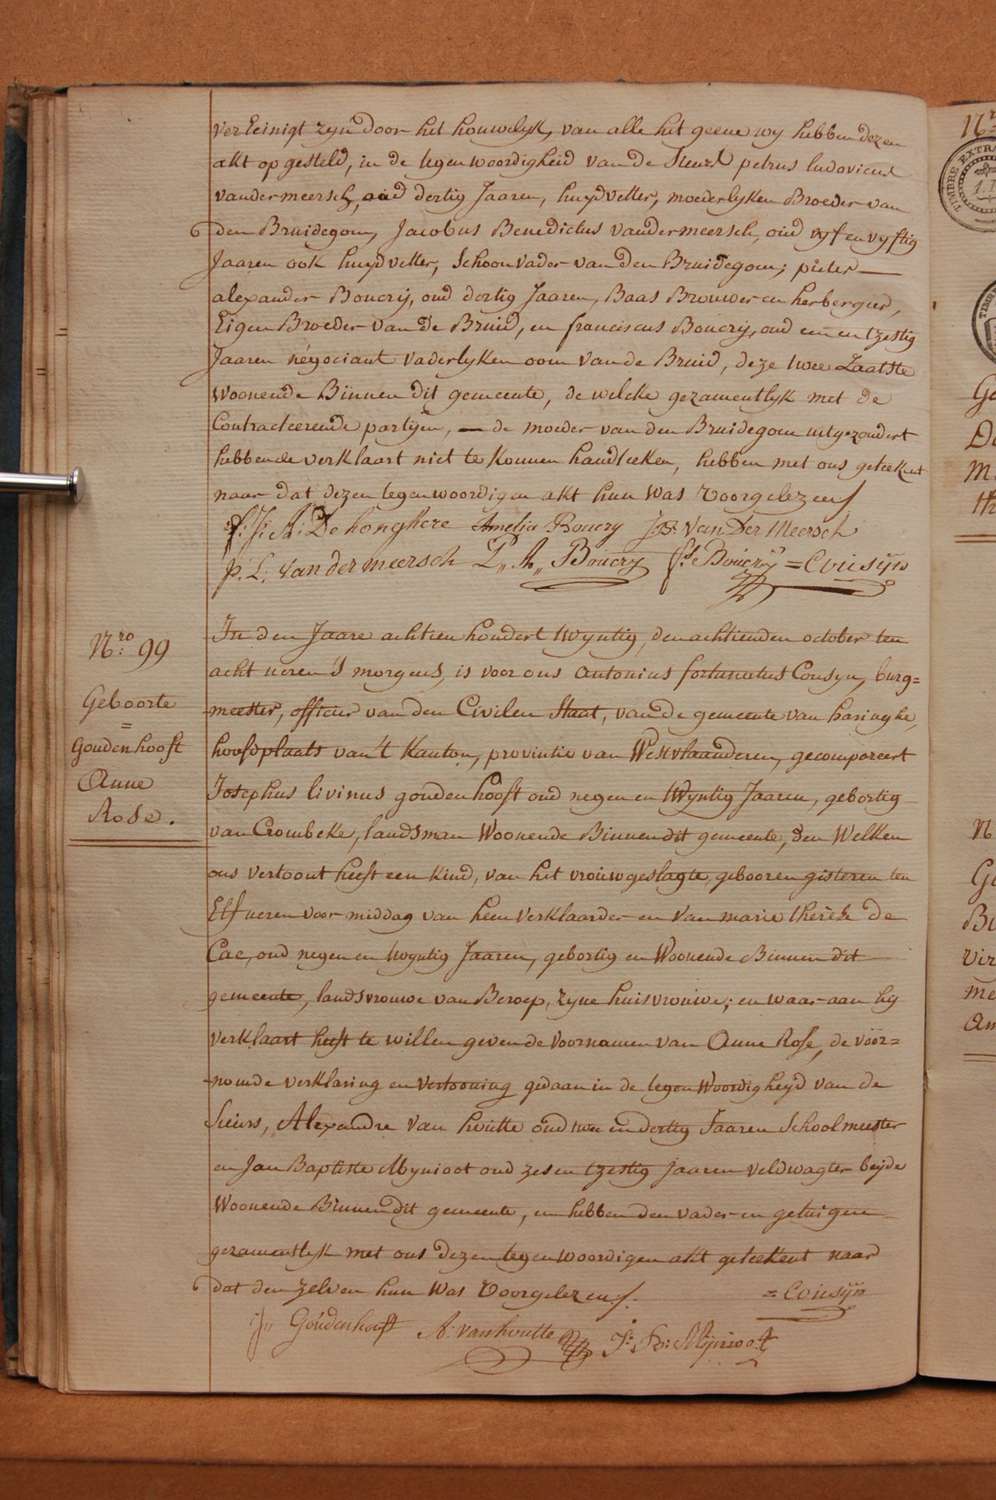 vereinigt zyn door het houwelyk, van alle het geene wy hebben dezen
akt opgesteld, in de tegenwoordigheid van de Sieurs petrus ludovicus
vandermeersch, oud dertig Jaaren, huydvetter, moederlyken Broeder van
den Bruidegom, Jacobus Benedictus vandermeersch, oud vyf en vyftig
Jaaren ook huydvetter, Schoonvader van den Bruidegom; pieter
alexander Boucry, oud dertig Jaaren, Baas Brouwer en herbergier,
Eigen Broeder van de Bruid, en franciscus Boucry, oud een en tzestig
Jaaren négociant vaderlyken oom van de Bruid, deze twee Laatste
Woonende Binnen dit gemeente, de welcke gezamentlyk met de
Contracteerende partijen, de moeder van den Bruidegom uitgezondert
hebbende verklaart niet te konnen handteeken, hebben met ons geteekent
naar dat dezen tegenwoordigen akt hun Was Voorgelezen
De honghere Amelia Boucry Van Der Meersch
P. L. van der meersch P. A. Boucry Boucry = Cousyn
Nro 99
Geboorte
=
Goudenhooft
Anne
Rose.
In den Jaare achtien hondert twyntig, den achtienden october ten
acht ueren 's morgens, is voor ons Antonius fortunatus Cousyn, burg=
meester, officier van den Civilen Staat, van de gemeente van haringhe,
hoofdplaats van 't Kanton, provintie van Westvlaanderen, gecompareert
Josephus livinus goudenhooft oud negen en twyntig Jaaren, gebortig
van Crombeke, landsman Woonende Binnen dit gemeente, den Welken
ons vertoont heeft een kind, van het vrouwgeslagte, gebooren gisteren ten
Elf ueren voor middag van hem verklaarder en van marie therese de
Cae, oud negen en twyntig Jaaren, gebortig en Woonende Binnen dit
gemeente, landsvrouwe van Beroep, zyne huisvrouwe; en waar aan hy
verklaart heeft te willen geven de voornamen van Anne Rose, de voor=
noemde verklaring en vertooning gedaan in de tegenwoordigheyd van de
Sieurs, Alexandre van houtte oud twee en dertig Jaaren Schoolmeester
en Jan Baptiste Mynioot oud zes en tzestig jaaren veldwagter beyde
Woonende Binnen dit gemeente, en hebben den vader en getuigen
gezamentlyk met ons dezen tegenwoordigen akt geteekent naar
dat den zelven hun Was Voorgelezen. = Cousijn
Goudenhooft A. vanhoutte J. B. Mynioot